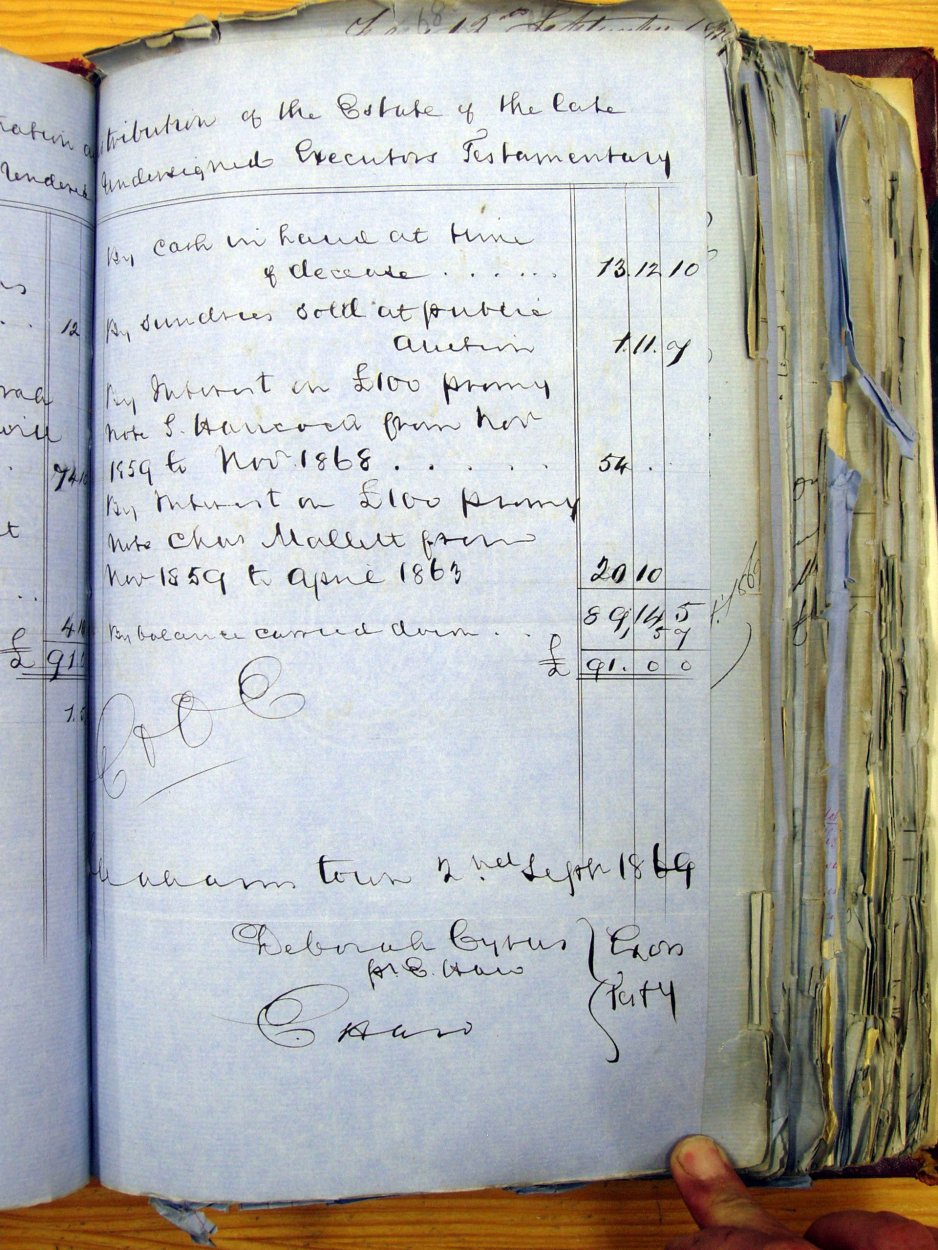 tribution of the Estate of the late
undersigned Executors Testamentary
By cash in hand at time
of decease . . . . . . 13. 12. 10
By sundries sold at public
auction 1. 11. 7
By Interest on £100 promy
note S. Hancock from Nov
1859 to Nov. 1868 . . . . . . 54 . .
By Interest on £100 promy
note Chas Mallett from
Nov 1859 to April 1863 20 10
89 14 5
By balance carried down . . 1 5 7
£ 91. 0 0
E & O E
Grahams town 2nd Septr 1869
Deborah Cyrus
pr E. Haw
E Haw
Exors
Testy
12
74
4
£ 91.
1.5